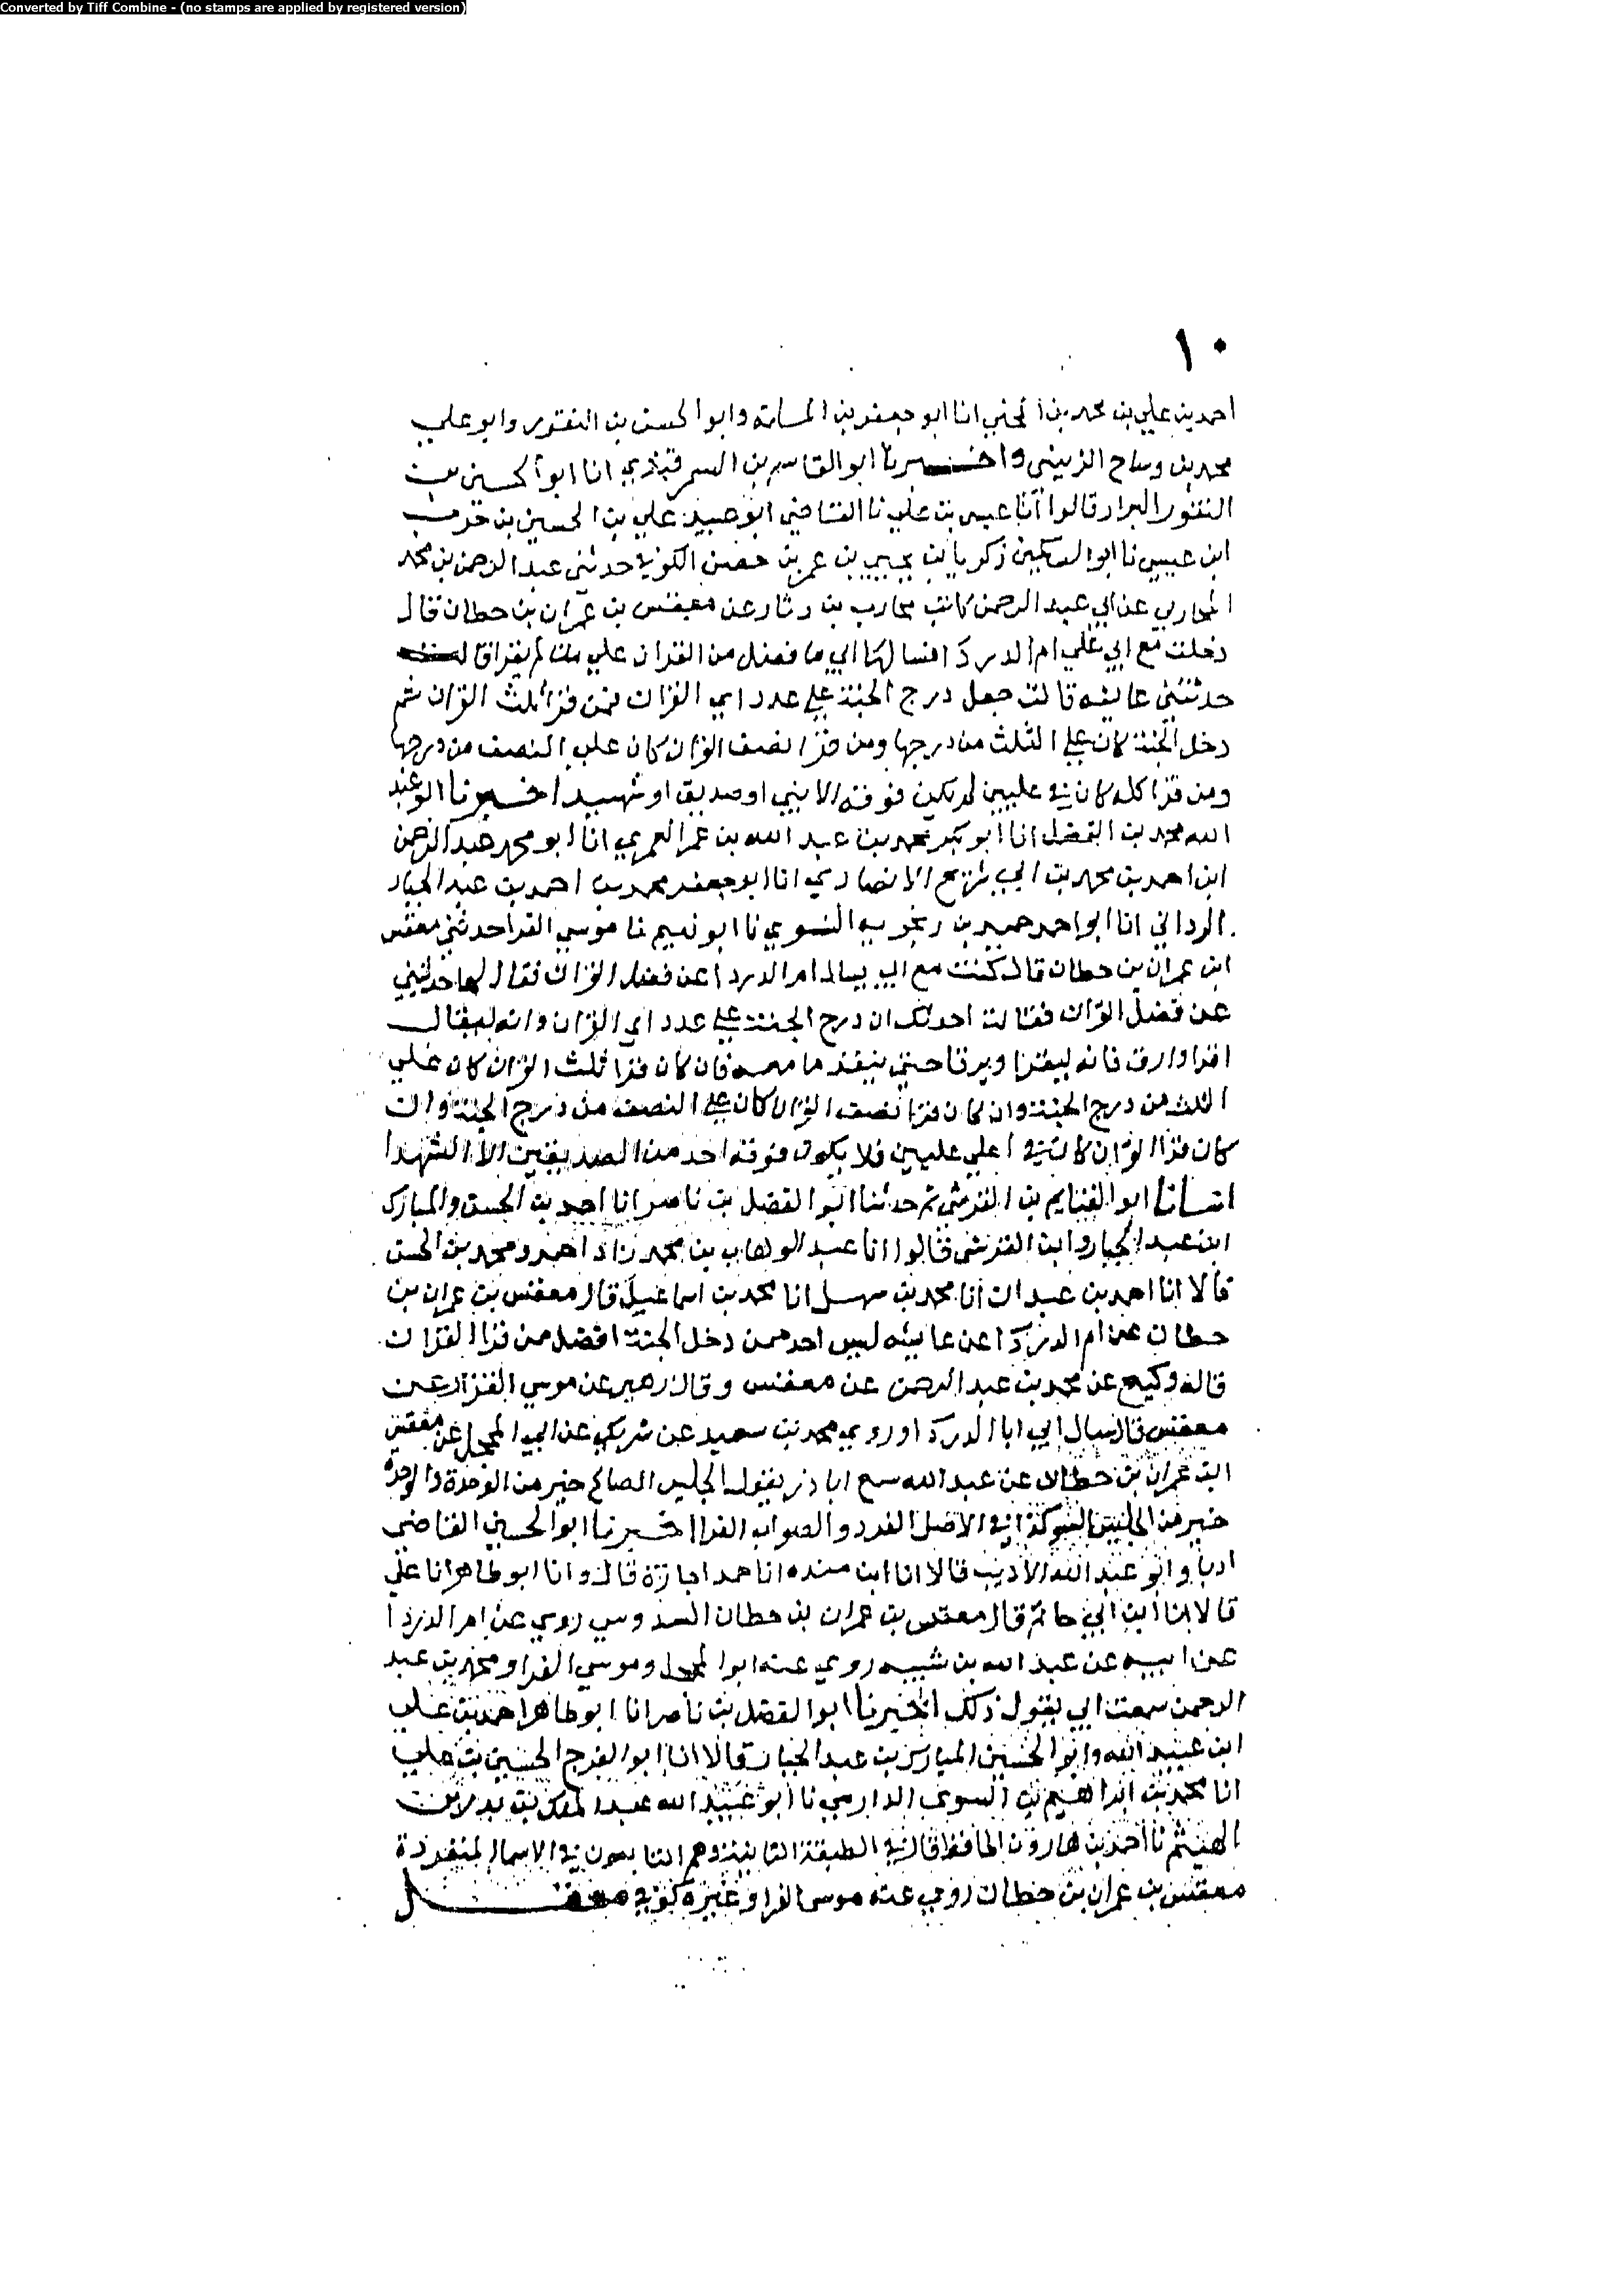 Converted by Tiff Combine - (no stamps are applied by registered version)
١٠
احمد بن علي بن محمد بن المجلي انا ابو جعفر بن المسلمة وابو الحسن بن النقور وابو علي
محمد بن وساح الزينبي واخبرنا ابو القاسم بن السمرقندي انا ابو الحسين بن
النقور البزار قالوا انا عيسى بن علي نا القاضي ابو عبيد علي بن الحسين بن حرب
ابن عيسى نا ابو السكين زكريا بن يحيى بن عمر بن حصن الكوفي حدثني عبد الرحمن بن محمد
المحاربي عن ابي عبد الرحمن كاتب محارب بن دثار عن معفس بن عمران بن حطان قال
دخلت مع ابي علي ام الدردا فسالها ابي ما فضل من القران علي من لم يقرا قالت
حدثتني عايشه قالت جعل درج الجنة علي عدد اي القران فمن قرا ثلث القران ثم
دخل الجنة كان علي الثلث من درجها ومن قرا نصف القران كان علي النصف من درجها
ومن قرا كله كان في عليين لم يكن فوقه الا نبي او صديق او شهيد اخبرنا ابو عبد
الله محمد بن الفضل انا ابو بكر محمد بن عبد الله بن عمر العمري انا ابو محمد عبد الرحمن
ابن احمد بن محمد بن ابي شريح الانصاري انا ابو جعفر محمد بن احمد بن عبد الجبار
الرداني انا ابو احمد حميد بن زنجويه النسوي نا ابو نعيم نا موسي الفرا حدثني معفس
ابن عمران بن حطان قال كنت مع ابي يسال ام الدردا عن فضل القران فقال لها حدثيني
عن فضل القران فقالت احدثك ان درج الجنة علي عدد اي القران وانه ليقال
اقرا وارق فانه ليقرا ويرقا حتي ينفذ ما معه فان كان قرا ثلث القران كان علي
الثلث من درج الجنة وان كان قرا نصف القران كان علي النصف من درج الجنة وان
كان قرا القران كان في اعلي عليين فلا يكون فوقه احد من الصديقين الا الشهدا
انبانا ابو الغنايم بن النرسي ثم حدثنا ابو الفضل بن ناصر انا احمد بن الحسن والمبارك
ابن عبد الجبار وابن النرسي قالوا انا عبد الوهاب بن محمد زاد احمد ومحمد بن الحسن
قالا انا احمد بن عبدان انا محمد بن سهل انا محمد بن اسماعيل قال معفس بن عمران بن
حطان عن ام الدردا عن عايشه ليس احد ممن دخل الجنة افضل ممن قرا القران
قاله وكيع عن محمد بن عبد الرحمن عن معفس وقال زهير عن موسي الفزار عن
معفس قال سال ابي ابا الدردا وروي محمد بن سعيد عن شريك عن ابي المحجل عن معفس
ابن عمران بن حطان عن عبد الله سمع ابا ذر يقول الجليس الصالح خير من الوحدة والوحدة
خير من الجليس السو كذا في الاصل الفرد والصواب الفرا اخبرنا ابو الحسين القاضي
اذنا وابو عبد الله الاديب قالا انا ابن منده انا حمد اجازة قال وانا ابو طاهر انا علي
قالا انا ابن ابي حاتم قال معفس بن عمران بن حطان السدوسي روي عن ام الدردا
عن ابيه عن عبد الله بن شبيب روي عنه ابو المحجل وموسي الفرا ومحمد بن عبد
الرحمن سمعت ابي يقول ذلك اخبرنا ابو الفضل بن ناصر انا ابو طاهر احمد بن علي
ابن عبيد الله وابو الحسين المبارك بن عبد الجبار قالا انا ابو الفرج الحسين بن علي
انا محمد بن ابراهيم بن السوي الدارمي نا ابو عبيد الله عبد الملك بن بدر بن
الهيثم نا احمد بن هارون الحافظ قال في الطبقة الثانية وهم التابعون في الاسما المنفردة
معفس بن عمران بن حطان روي عنه موسي الفرا وغيره كوفي معقل